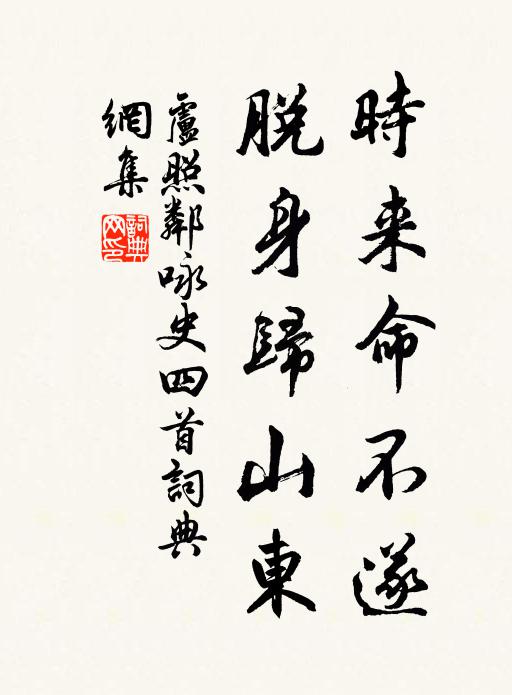 時来命不遂
脱身歸山東
盧照鄰咏史四首詞典
網集
詞典
网印